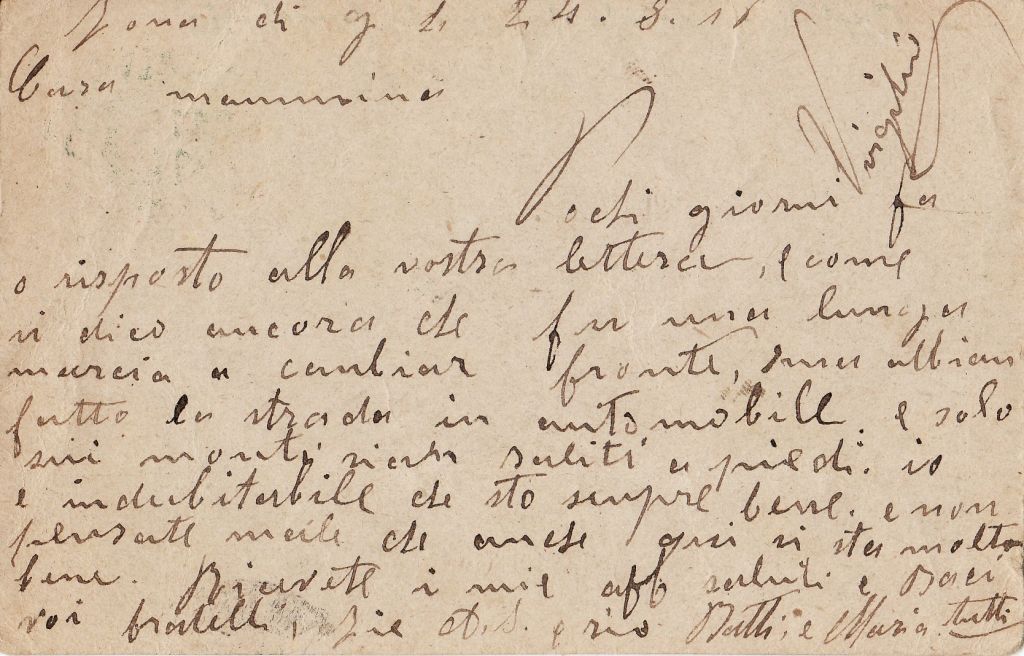 Zona di g 24.5.18
Cara mammina
Virgilio
Pochi giorni fa
o risposto alla vostra lettera, e come
vi dico ancora che fu una lunga
marcia a cambiar fronte, ma abbiam
fatto la strada in automobile e solo
sui monti siam saliti a piedi. io
e indubitabile che sto sempre bene. e non
pensate male che anche qui si sta molto
bene. Ricevete i mie aff saluti e Baci
voi fratelli, zie e zio Batti, e Maria tutti